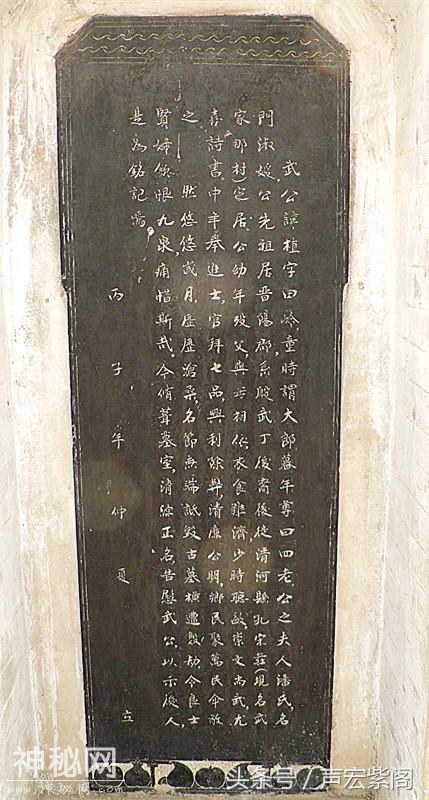 武公諱植字曰岭童時謂大郎暮年尊曰四老公之夫人潘氏名
門淑媛公先祖居晋陽郡系殷武丁後裔後徙清河縣孔宋莊(現名武
家那村)定居公幼年殁父與母相依衣食難濟少時聰敏崇文尚武尤
喜詩書中年舉進士官拜七品興利除弊清廉公明鄉民聚萬民傘敬
之 然悠悠歲月歷歷滄桑名節無端詆毀古墓橫遭盜劫令良士
賢婦飲恨九泉痛惜斯哉今修葺墓室清源正名告慰武公以示後人
是為銘記焉
丙子年仲夏 立
神秘网
头条号/声宏紫阁